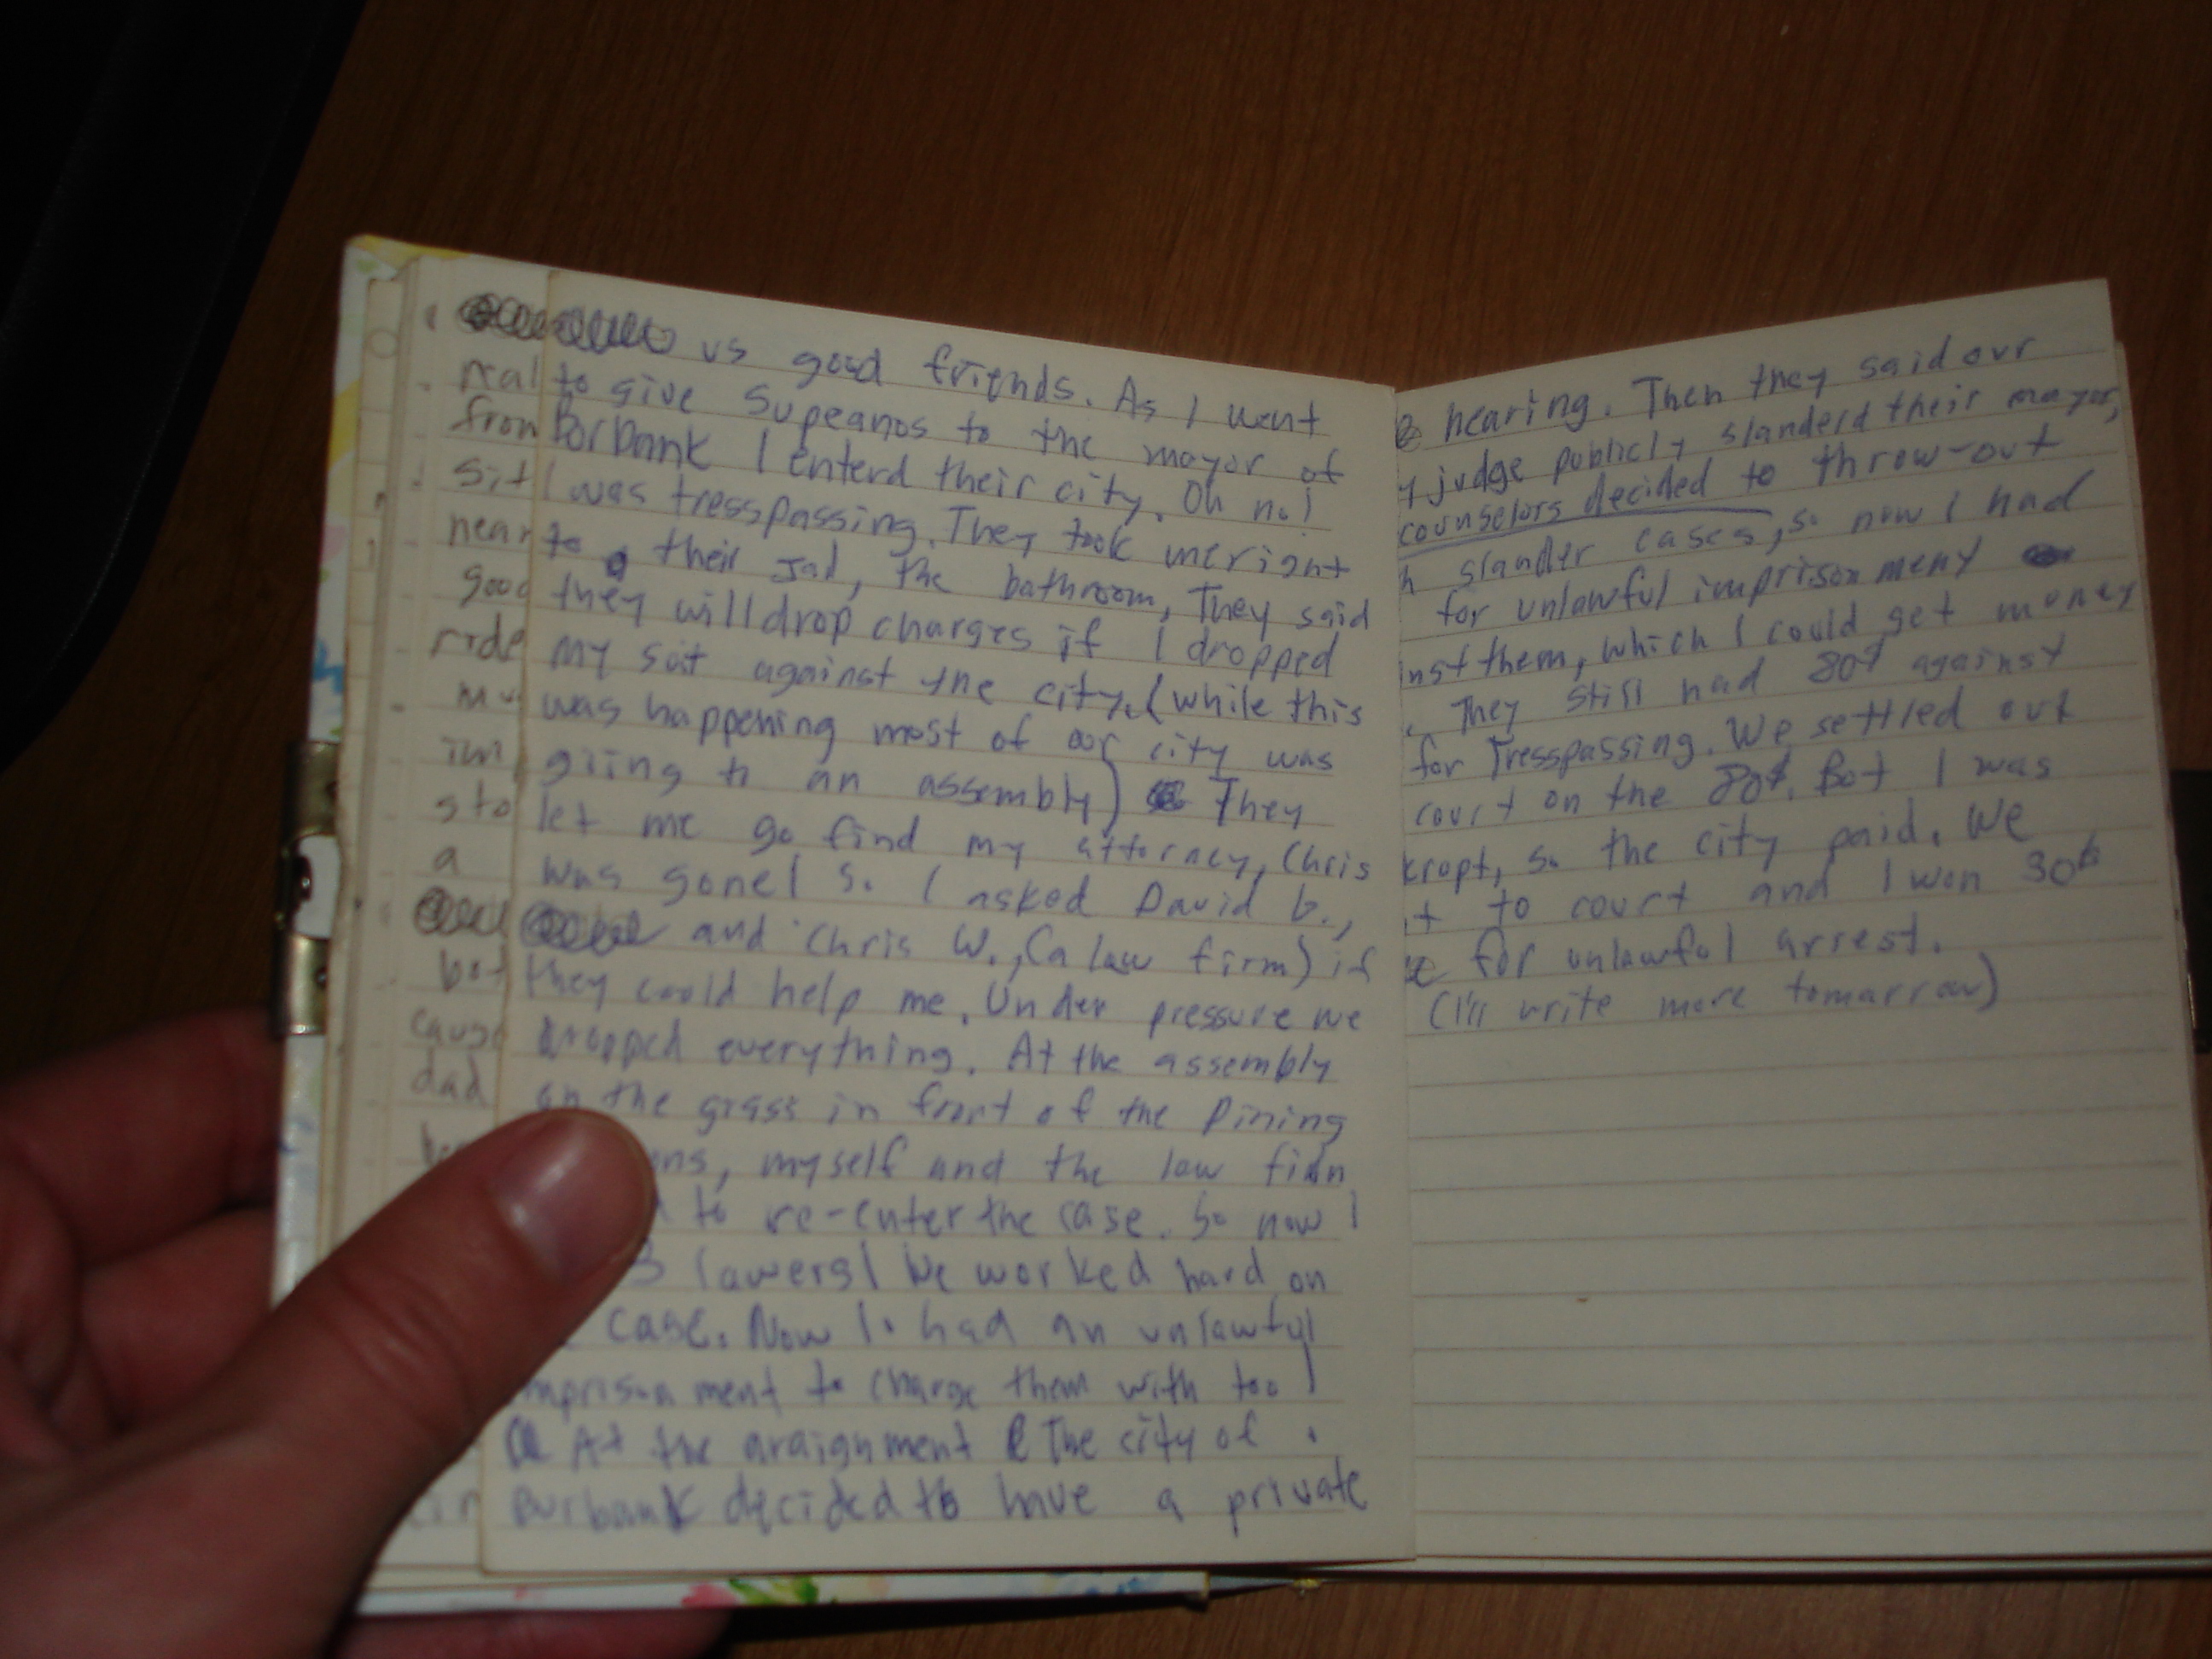 vs good friends. As I went
to give Supeanos to the mayor of
Borbank I enterd their city. Oh no!
I was tresspassing. They took me right
to their Jail, the bathroom, They said
they will drop charges if I dropped
my suit against the city. (while this
was happening most of our city was
going to an assembly) They
let me go find my attorney, Chris
was gone! So I asked David B.,
and Chris W., (a law firm) if
they could help me. Under pressure we
dropped everything. At the assembly
on the grass in front of the Dining
myself and the law firm
to re-enter the case. So now I
3 lawers! We worked hard on
case. Now I had an unlawful
mprisonment to charge them with too!
At the araignment The city of
Burbank decided to have a private
hearing. Then they said our
judge publicly slanderd their mayor,
counselors decided to throw-out
slander cases, so now I had
for unlawful imprisonmeny
inst them, which I could get money
. They still had 80¢ against
for Tresspassing. We settled out
court on the 80¢. But I was
krupt, so the city paid. We
to court and I won 30
for unlawful arrest.
(I'll write more tomarrow)
real
from
sit
near
good
ride
sto
a
but
cause
dad